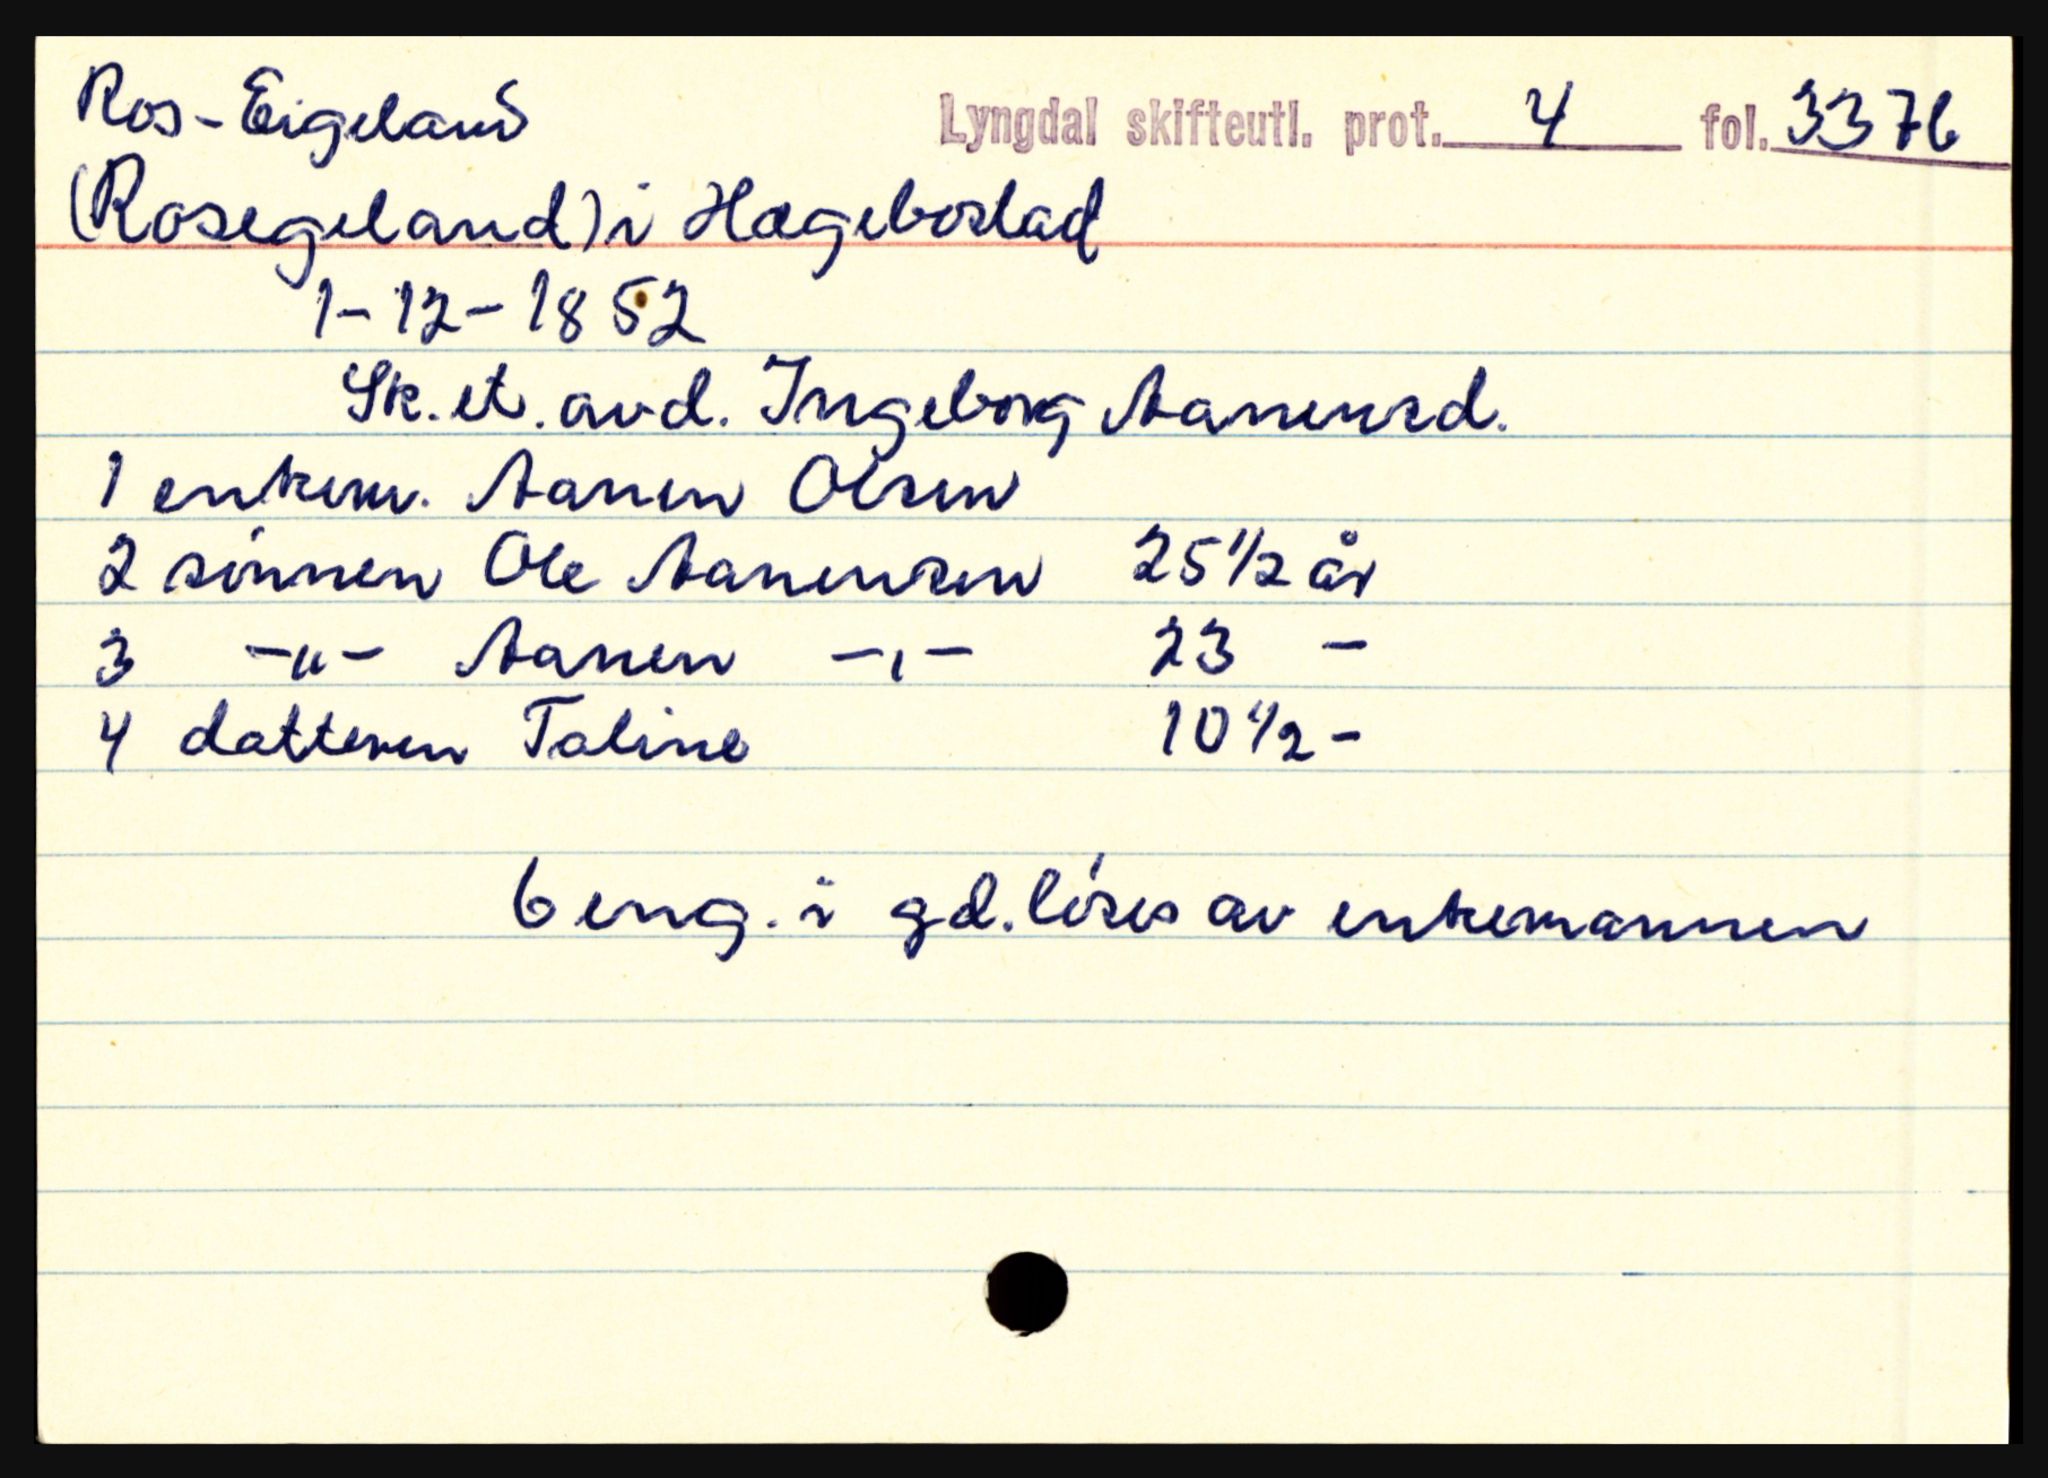 Ros-Eigeland
Lyngdal skifteutl. prot. 4 fol. 337b
(Rosegeland) i Hægebostad
1-12-1852
Sk.et. avd. Ingeborg Aanensd.
1 enkem. Aanen Olsen
2 sönnen Ole Aanensen 25 1/2 år
3 -"- Aanen -,- 23 -
4 datteren Taline 10 1/2 -
6 eng. i gd. löses av enkemannen